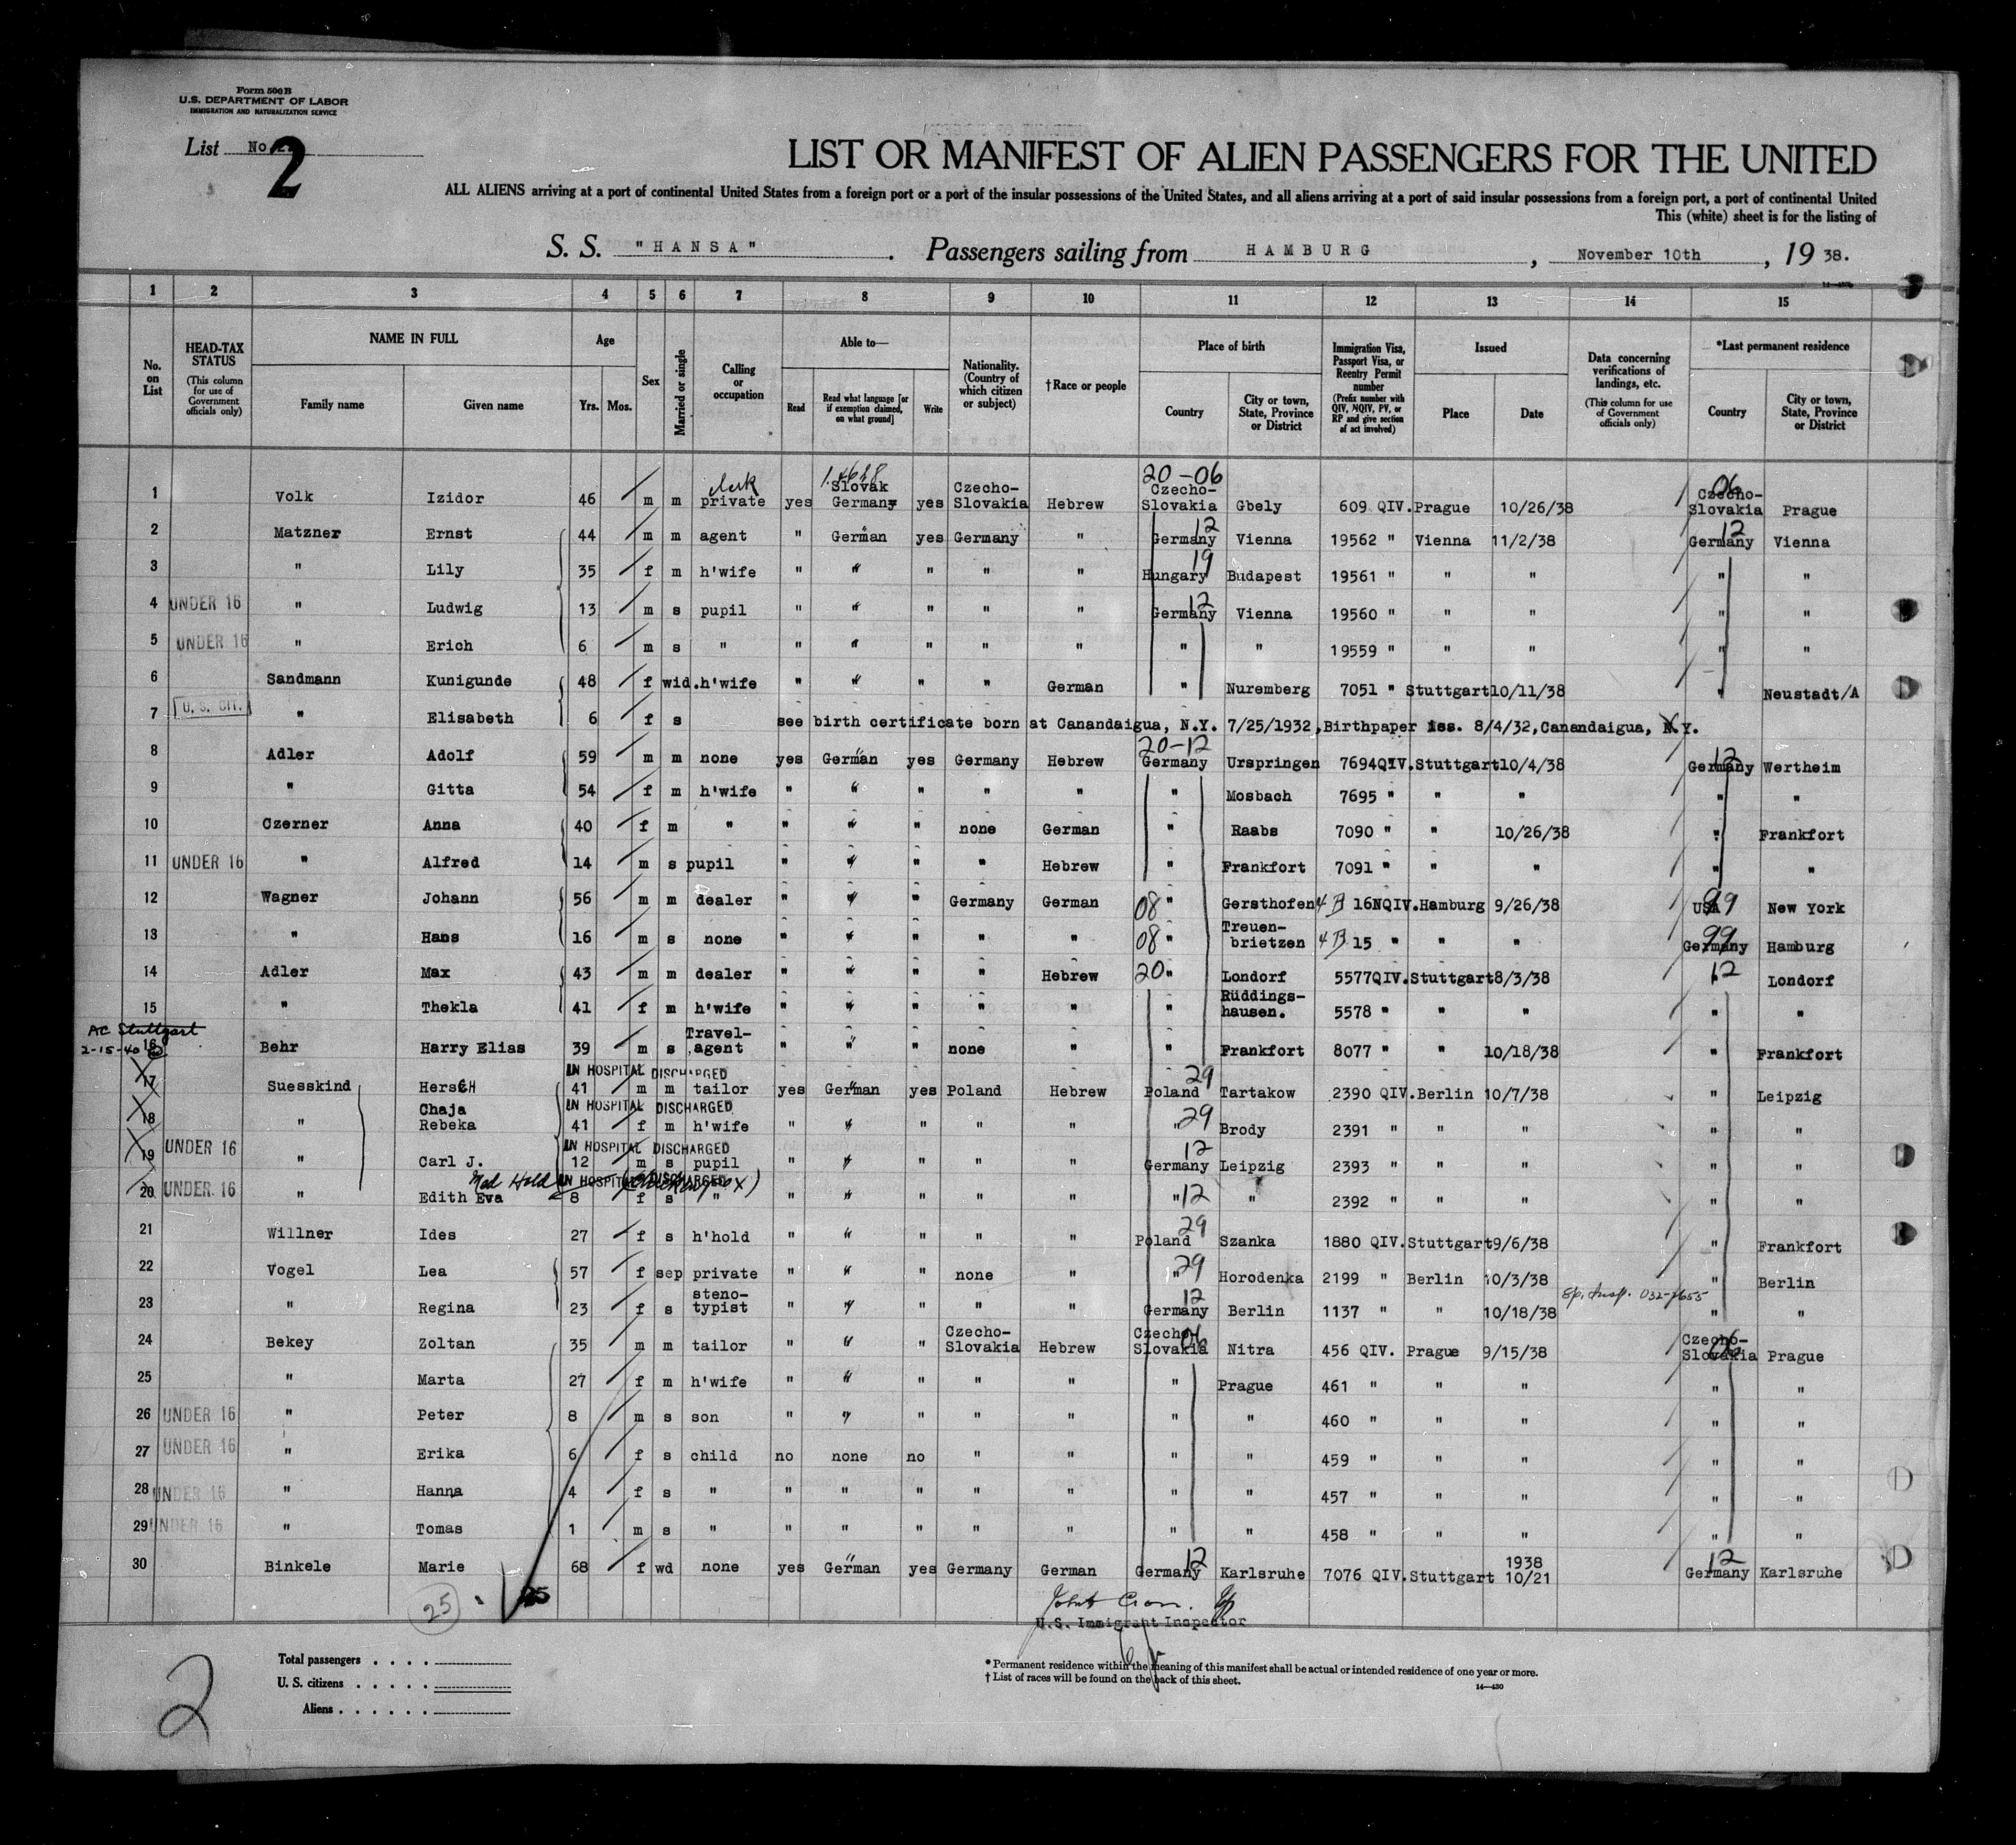 Form 500B
U.S. DEPARTMENT OF LABOR
IMMIGRATION AND NATURALIZATION SERVICE
List No. 2
LIST OR MANIFEST OF ALIEN PASSENGERS FOR THE UNITED
ALL ALIENS arriving at a port of continental United States from a foreign port or a port of the insular possessions of the United States, and all aliens arriving at a port of said insular possessions from a foreign port, a port of continental United
This (white) sheet is for the listing of
S. S. "HANSA". Passengers sailing from HAMBURG, November 10th, 19 38.
1 2 3 4 5 6 7 8 9 10 11 12 13 14 15
No. on List
HEAD-TAX STATUS (This column for use of Government officials only)
NAME IN FULL Family name Given name
Age Yrs. Mos.
Sex
Married or single
Calling or occupation
Able to— Read Read what language [or if exemption claimed, on what ground] Write
Nationality. (Country of which citizen or subject)
†Race or people
Place of birth Country City or town, State, Province or District
Immigration Visa, Passport Visa, or Reentry Permit number (Prefix number with QIV, NQIV, PV, or RP and give section of act involved)
Issued Place Date
Data concerning verifications of landings, etc. (This column for use of Government officials only)
*Last permanent residence Country City or town, State, Province or District
1 Volk Izidor 46 m m clerk private yes Slovak German yes Czecho-Slovakia Hebrew 20-06 Czecho-Slovakia Gbely 609 QIV. Prague 10/26/38 06 Czecho-Slovakia Prague
2 Matzner Ernst 44 m m agent " German yes Germany " 12 Germany Vienna 19562 " Vienna 11/2/38 12 Germany Vienna
3 " Lily 35 f m h'wife " " " " " 19 Hungary Budapest 19561 " " " " "
4 UNDER 16 " Ludwig 13 m s pupil " " " " " 12 Germany Vienna 19560 " " " " "
5 UNDER 16 " Erich 6 m s " " " " " " " " 19559 " " " " "
6 Sandmann Kunigunde 48 f wid. h'wife " " " " German " Nuremberg 7051 " Stuttgart 10/11/38 " Neustadt/A
7 U. S. CIT. " Elisabeth 6 f s see birth certificate born at Canandaigua, N.Y. 7/25/1932, Birthpaper iss. 8/4/32, Canandaigua, N.Y.
8 Adler Adolf 59 m m none yes German yes Germany Hebrew 20-12 Germany Urspringen 7694 QIV. Stuttgart 10/4/38 12 Germany Wertheim
9 " Gitta 54 f m h'wife " " " " " " Mosbach 7695 " " " " "
10 Czerner Anna 40 f m " " " " none German " Raabs 7090 " " 10/26/38 " Frankfort
11 UNDER 16 " Alfred 14 m s pupil " " " " Hebrew " Frankfort 7091 " " " " "
12 Wagner Johann 56 m m dealer " " " Germany German 08 " Gersthofen 4 B 16 NQIV. Hamburg 9/26/38 99 USA New York
13 " Hans 16 m s none " " " " " 08 " Treuen-brietzen 4 B 15 " " " 99 Germany Hamburg
14 Adler Max 43 m m dealer " " " " Hebrew 20 " Londorf 5577 QIV. Stuttgart 8/3/38 12 Londorf
15 " Thekla 41 f m h'wife " " " " " " Rüddings-hausen. 5578 " " " " "
AC Stuttgart
2-15-40
16 Behr Harry Elias 39 m s Travel-agent " " " none " " Frankfort 8077 " " 10/18/38 " Frankfort
IN HOSPITAL DISCHARGED
17 Suesskind HersCH 41 m m tailor yes German yes Poland Hebrew 29 Poland Tartakow 2390 QIV. Berlin 10/7/38 " Leipzig
IN HOSPITAL DISCHARGED
18 " Chaja Rebeka 41 f m h'wife " " " " " 29 " Brody 2391 " " " " "
IN HOSPITAL DISCHARGED
19 UNDER 16 " Carl J. 12 m s pupil " " " " " 12 Germany Leipzig 2393 " " " " "
Med Hold IN HOSPITAL DISCHARGED (Chickenpox)
20 UNDER 16 " Edith Eva 8 f s " " " " " " 12 " " 2392 " " " " "
21 Willner Ides 27 f s h'hold " " " " " 29 Poland Szanka 1880 QIV. Stuttgart 9/6/38 " Frankfort
22 Vogel Lea 57 f sep private " " " none " 29 " Horodenka 2199 " Berlin 10/3/38 " Berlin
23 " Regina 23 f s steno-typist " " " " " 12 Germany Berlin 1137 " " 10/18/38 " "
24 Bekey Zoltan 35 m m tailor " " " Czecho-Slovakia Hebrew 06 Czecho-Slovakia Nitra 456 QIV. Prague 9/15/38 06 Czecho-Slovakia Prague
25 " Marta 27 f m h'wife " " " " " " Prague 461 " " " " "
26 UNDER 16 " Peter 8 m s son " " " " " " " 460 " " " " "
27 UNDER 16 " Erika 6 f s child no none no " " " " 459 " " " " "
28 UNDER 16 " Hanna 4 f s " " " " " " " " 457 " " " " "
29 UNDER 16 " Tomas 1 m s " " " " " " " " 458 " " " " "
30 Binkele Marie 68 f wd none yes German yes Germany German 12 Germany Karlsruhe 7076 QIV. Stuttgart 1938 10/21 12 Germany Karlsruhe
25
U.S. Immigrant Inspector
Total passengers . . . .
U. S. citizens . . . . .
Aliens . . . . . .
*Permanent residence within the meaning of this manifest shall be actual or intended residence of one year or more.
†List of races will be found on the back of this sheet.
14—430
2